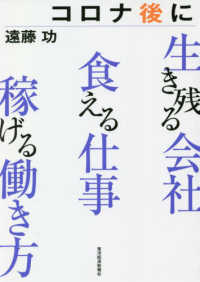 コロナ後に
遠藤 功
生き残る会社
食える仕事
稼げる働き方
東洋経済新報社